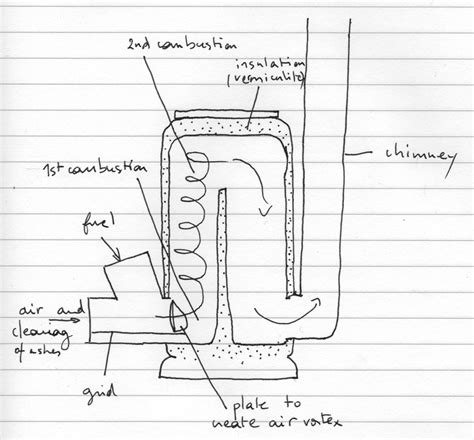 2nd combustion
insulation
(vermiculite)
1st combustion
chimney
fuel
air and
cleaning
of ashes
grid
plate to
create air vortex